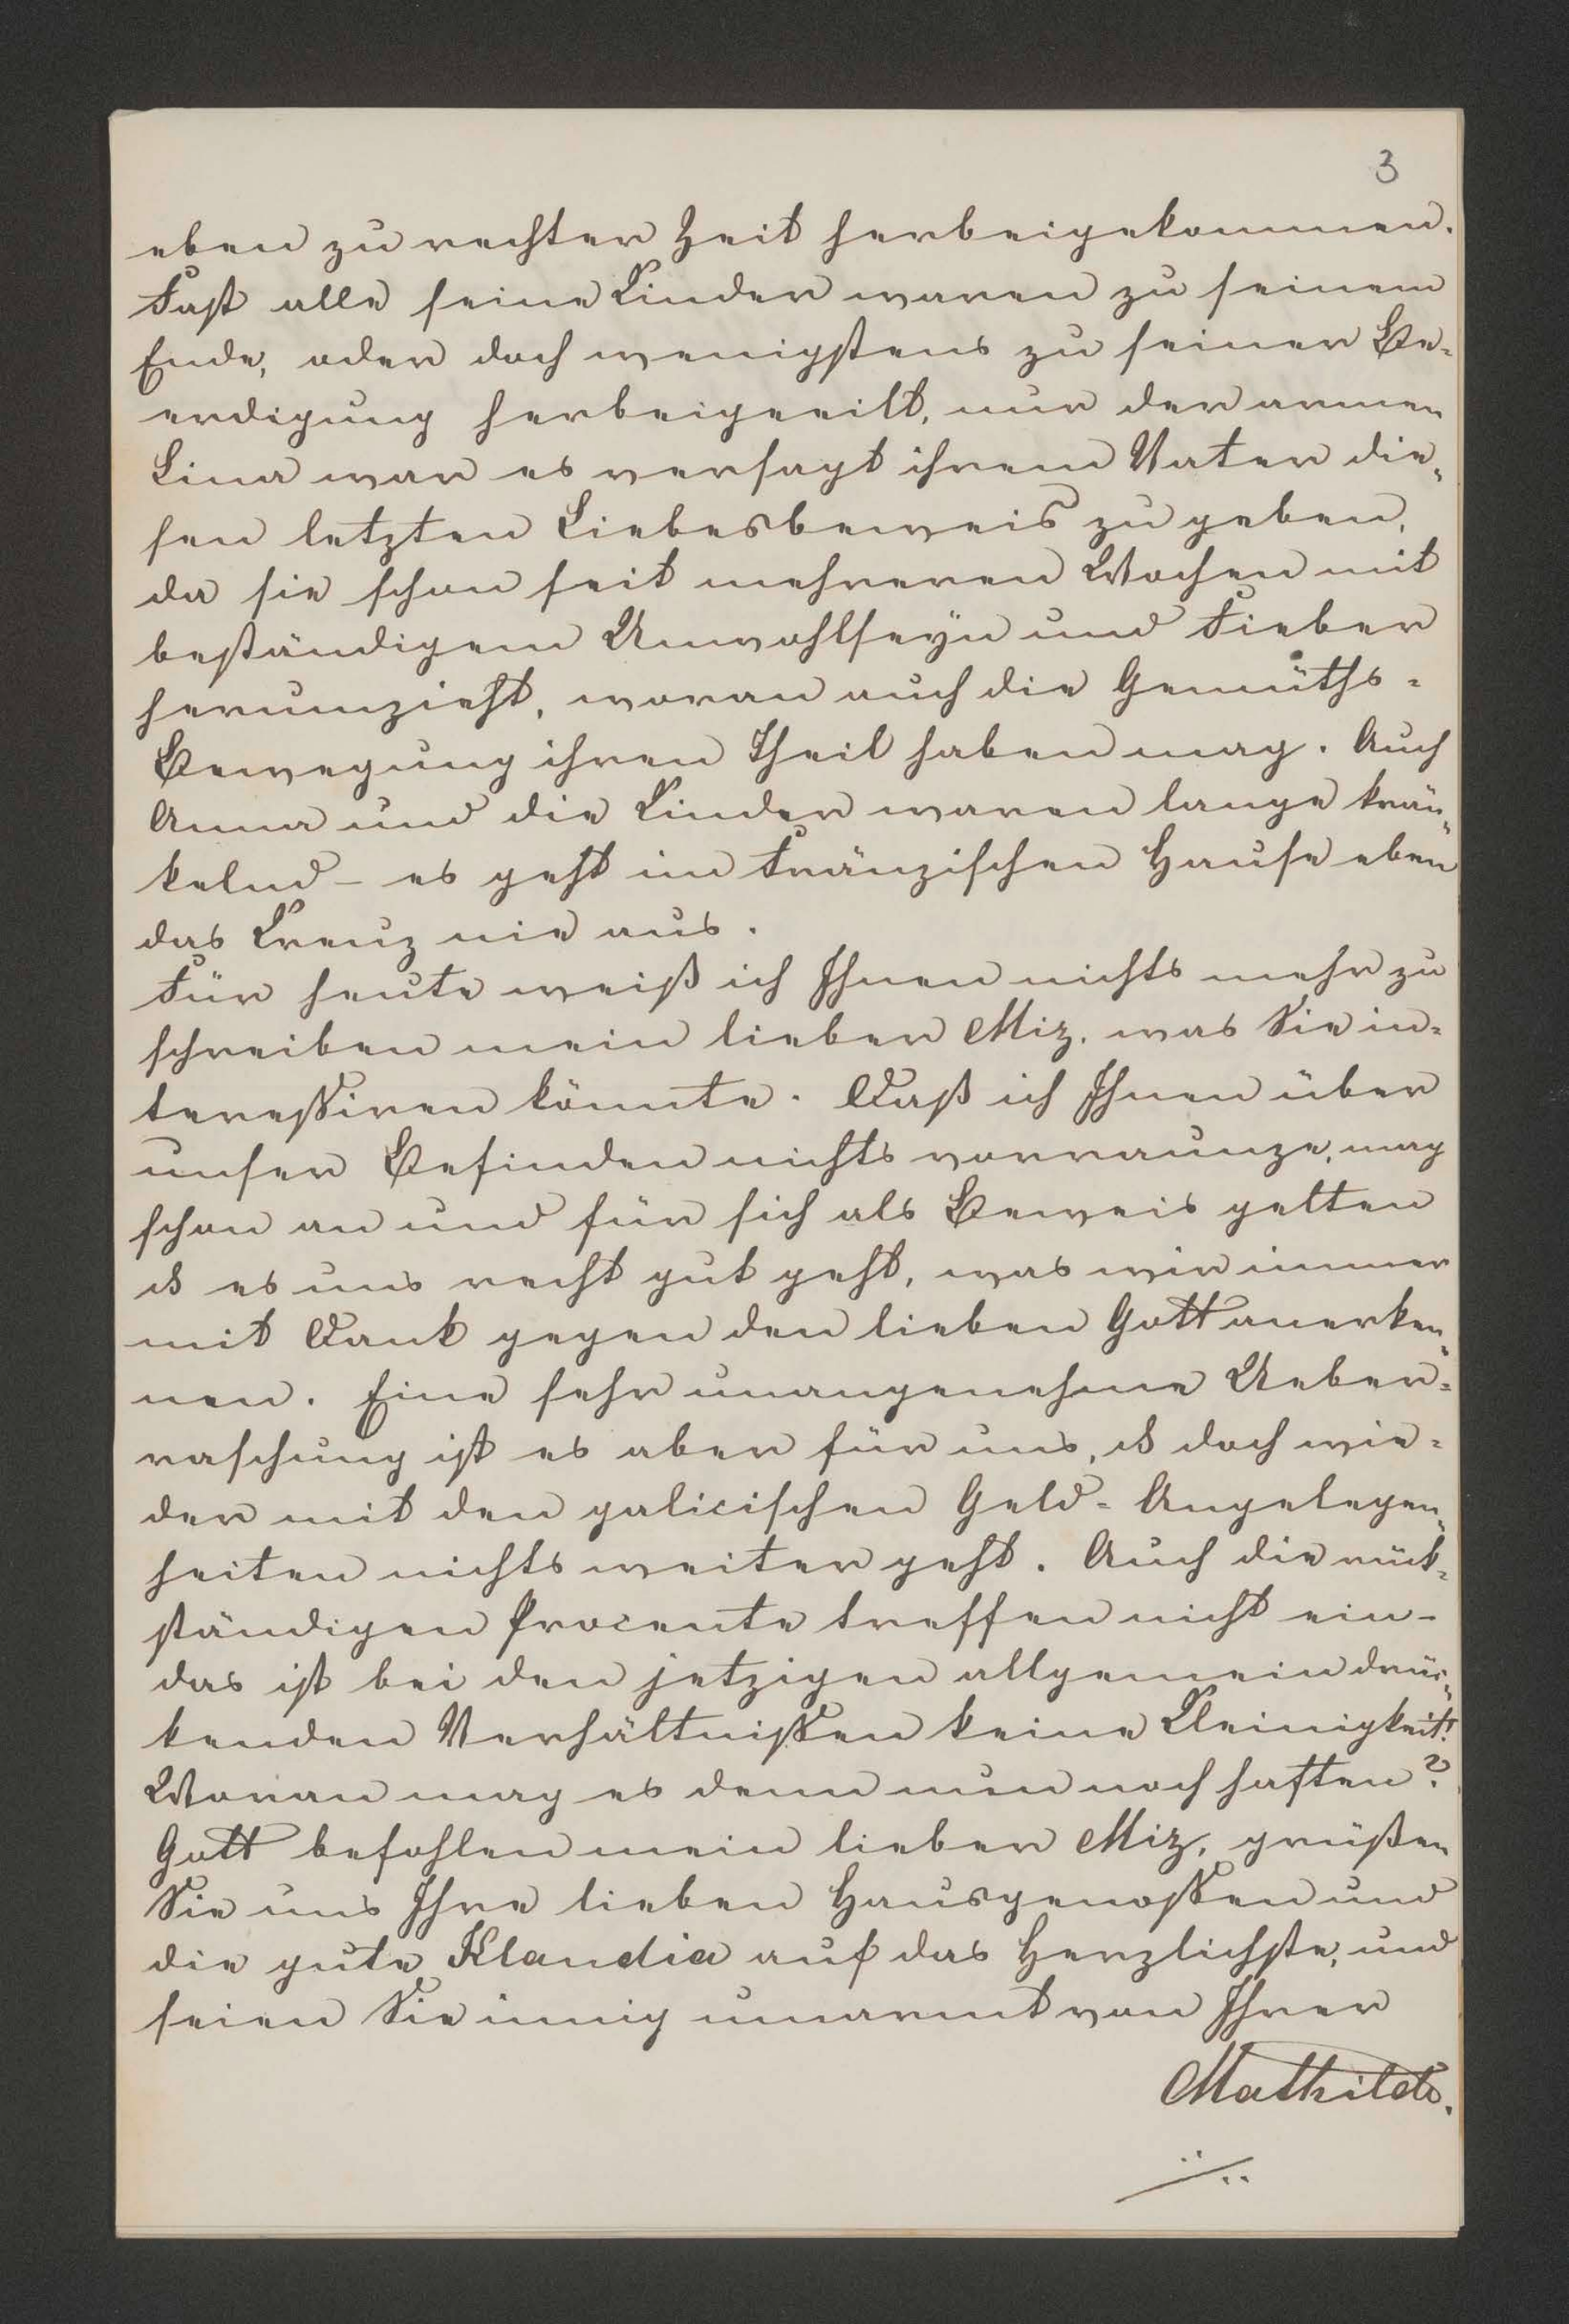 3
eben zu rechter Zeit herbeigekommen.
Fast alle seine Kinder waren zu seinem
Ende, oder doch wenigstens zu seiner Be-
erdigung herbeigeeilt, nur der armen
Lina war es versagt ihrem Vater die-
sen letzten Liebesbeweis zu geben,
da sie schon seit mehreren Wochen mit
beständigem Unwohlseyn und Fieber
herumzieht, woran auch die Gemüths-
Bewegung ihren Theil haben mag. Auch
Anna und die Kinder waren lange krän-
kelnd – es geht im Fränzischen Hause eben
das Kreuz nie aus.
Für heute weiß ich Ihnen nichts mehr zu
schreiben mein lieber Miz, was Sie in-
teressiren könnte. Daß ich Ihnen über
unser Befinden nichts vorraunze, mag
schon an und für sich als Beweis gelten
es uns recht gut geht, was wir immer
mit Dank gegen den lieben Gott anerken-
nen. Eine sehr unangenehme Ueber-
raschung ist es aber für uns, doch wie-
der mit den galicischen Geld-Angelegen-
heiten nichts weiter geht. Auch die rück-
ständigen Procente treffen nicht ein –
das ist bei den jetzigen allgemein drüc-
kenden Verhältnissen keine Kleinigkeit!
Woran mag es denn nun noch haften?
Gott befohlen mein lieber Miz, grüßen
Sie uns Ihre lieben Hausgenossen und
die gute Klaudia auf das Herzlichste, und
seien Sie innig umarmt von Ihrer
Mathilde.